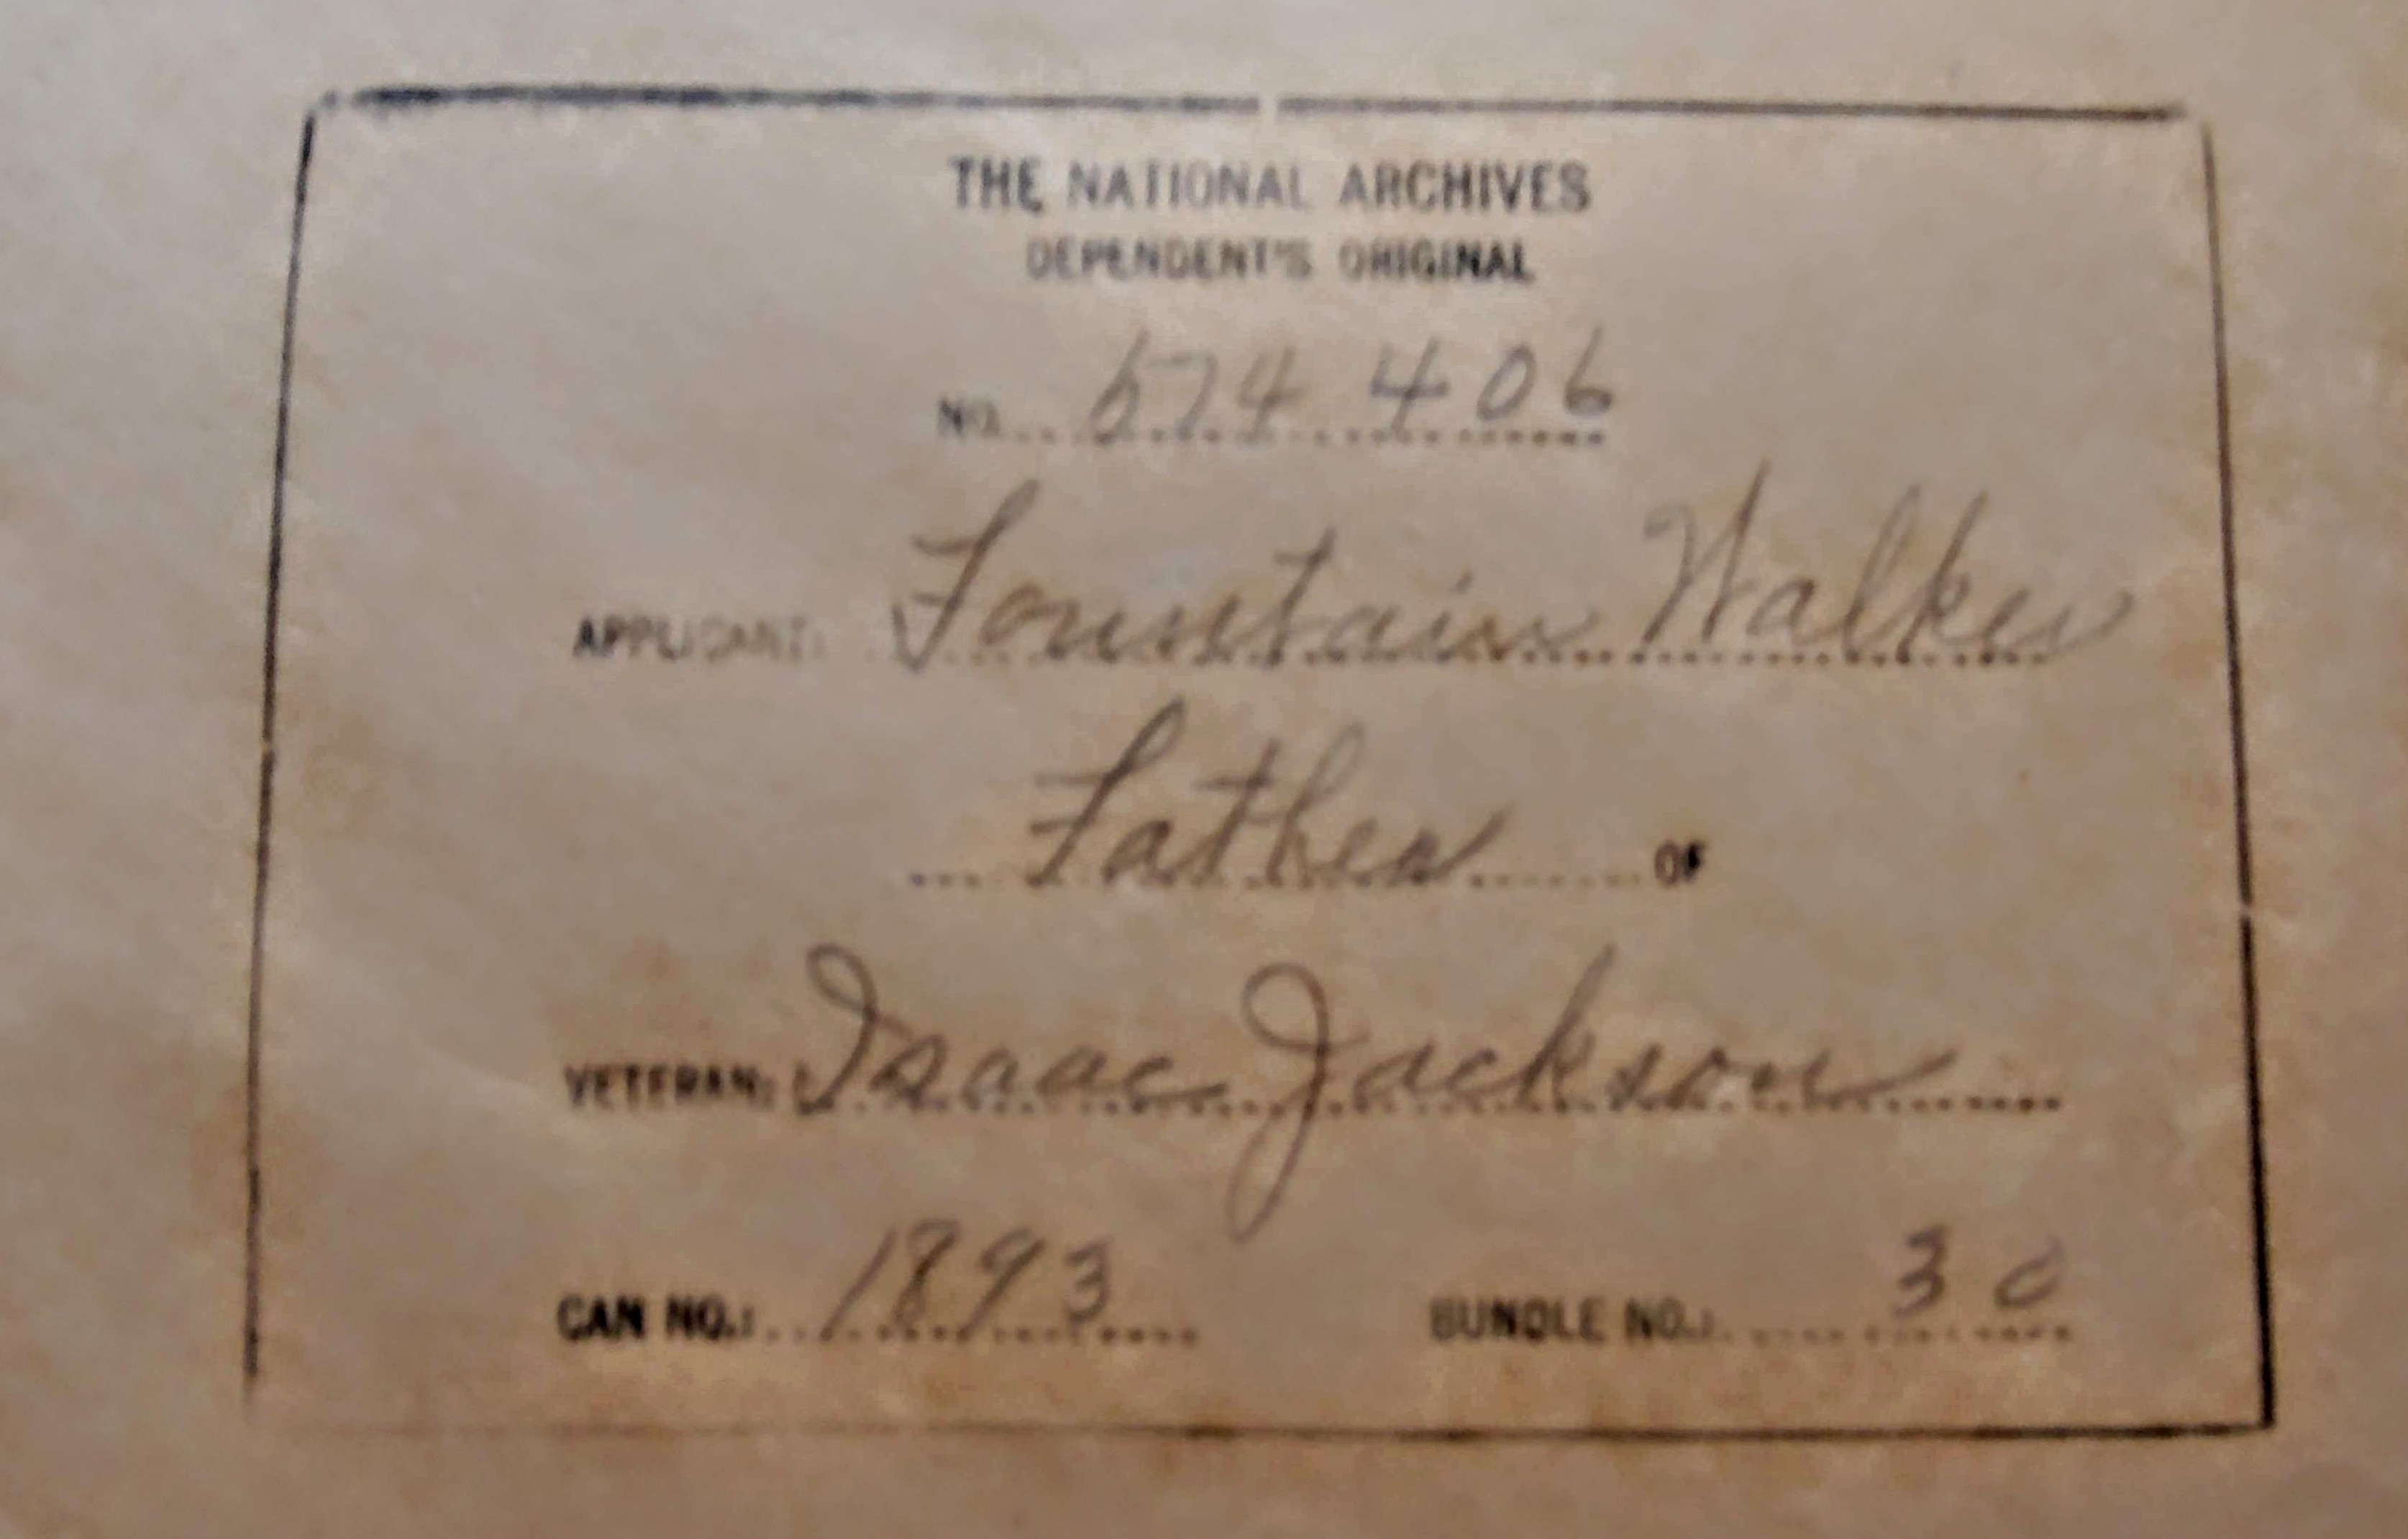 THE NATIONAL ARCHIVES
DEPENDENT'S ORIGINAL
NO. 674 406
APPLICANT: Fountain Walker
Father OF
VETERAN: Isaac Jackson
CAN NO.: 1893 BUNDLE NO.: 30